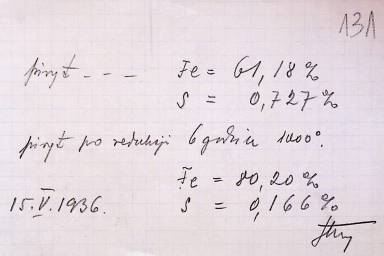 131
piryt - - - Fe = 61,18 %
S = 0,727 %
piryt po redukcji 6 godzin 1000°.
Fe = 80,20 %
15.V.1936. S = 0,166 %